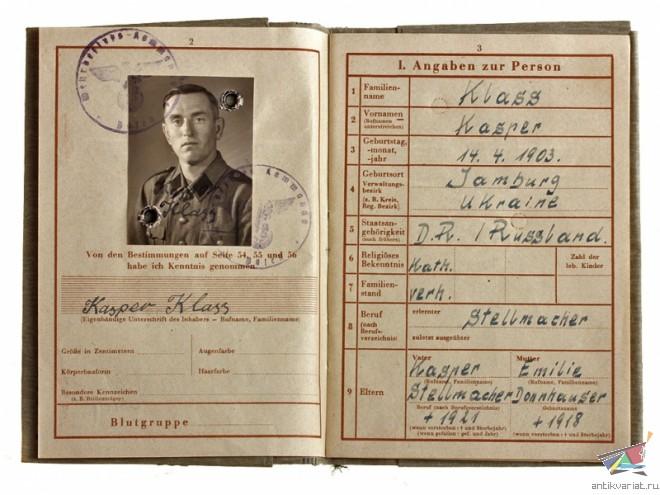 2
Wehrbezirks-Kommando
Klass
Von den Bestimmungen auf Seite 54, 55 und 56
habe ich Kenntnis genommen
Kasper Klass
(Eigenhändige Unterschrift des Inhabers — Rufname, Familienname)
Größe in Zentimetern
Augenfarbe
Körperbauform
Haarfarbe
Besondere Kennzeichen
(z. B. Brillenträger)
Blutgruppe
3
I. Angaben zur Person
1 Familienname Klass
2 Vornamen Kasper
(Rufnamen unterstreichen)
3 Geburtstag, -monat, -jahr 14. 4. 1903.
4 Geburtsort Jamburg
Verwaltungsbezirk Ukraine
(z. B. Kreis, Reg. Bezirk)
5 Staatsangehörigkeit D.R. / Russland.
(auch frühere)
6 Religiöses Bekenntnis Kath.
Zahl der leb. Kinder
7 Familienstand verh.
8 Beruf
(nach Berufsverzeichnis)
erlernter Stellmacher
zuletzt ausgeübter
9 Eltern
Vater Mutter
Kasper Emilie
(Rufname, Familienname) (Rufname, Familienname)
Stellmacher Donnhauser
Beruf (nach Berufsverzeichnis) Geburtsname
+ 1921 + 1918
(wenn verstorben: + und Sterbejahr) (wenn verstorben: + und Sterbejahr)
(wenn gefallen: gef. und Jahr)
antikvariat.ru